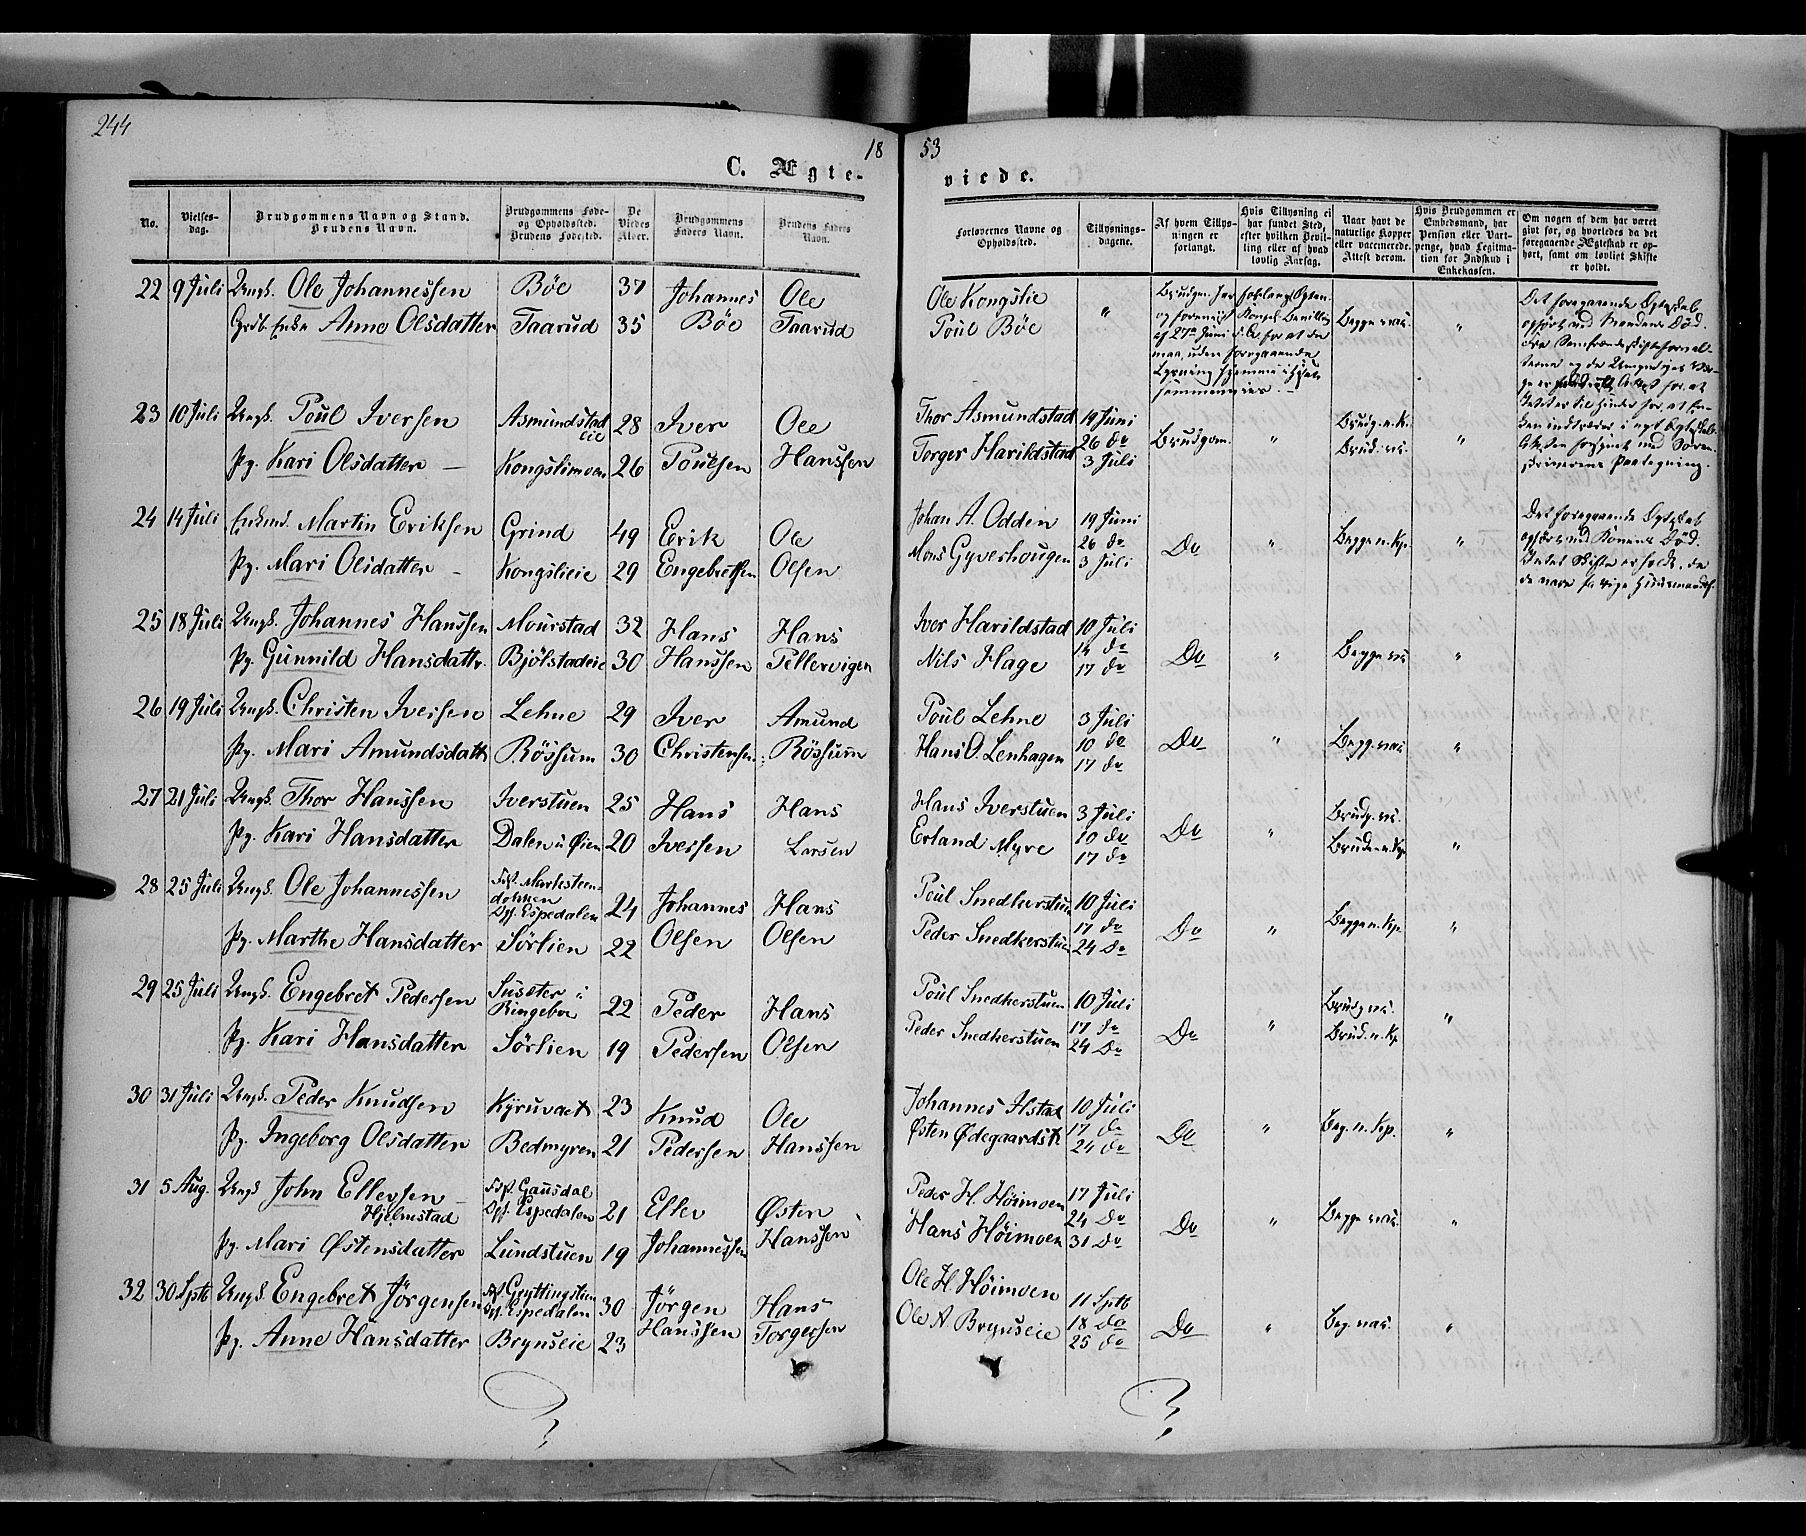 244
18
53
C. Ægte-
viede.
No.
Vielses-
dag.
Brudgommens Navn og Stand.
Brudens Navn.
Brudgommens Føde-
og Opholdssted.
Brudens Fødested.
De
Viedes
Alder.
Brudgommens
Faders Navn.
Brudens Faders
Navn.
Forlovernes Navne og
Opholdssted.
Tillysnings-
dagene.
Af hvem Tillys-
ningen er
forlangt.
Hvis Tillysning ei
har fundet Sted,
efter hvilken Bevil-
ling eller af hvad
lovlig Aarsag.
Naar havt de
naturlige Kopper
eller vaccinerede.
Attest derom.
Hvis Brudgommen er
Embedsmand, har
Pension eller Vart-
penge, hvad Legitima-
tion for Indskud i
Enkekassen.
Om nogen af dem har været
gift før, og hvorledes da det
foregaaende Ægteskab er op-
hørt, samt om lovligt Skifte
er holdt.
22 9 Juli Ungk. Ole Johannessen Böe 37 Johannes Ole Ole Kongslie
Enke Anne Olsdatter Taarud 35 Böe Taarud Poul Böe " Begge vac. "
Det foregaaende Egteskab
ophört ved Mandens Död.
23 10 Juli Ungk. Poul Iversen Asmundstad eie 28 Iver Ole Thor Asmundstad 19 Juni Brudg. n. K.
Pg. Kari Olsdatter – Kongslimoen 26 Poulsen Hanssen Torger Harildstad 26 do 3 Juli Brudgom. " Brud. vac. "
24 14 Juli Enkmd. Martin Eriksen Grind 49 Erik Ole Johan A. Odden 19 Juni
Pg. Mari Olsdatter – Kongslieie 29 Engebretsen Olsen Mons Gyveshougen 26 do 3 Juli Do " Begge n. Kp. "
Det foregaaende Egteskab
ophört ved Konens Död.
25 18 Juli Ungk. Johannes Hanssen Mourstad 32 Hans Hans Iver Harildstad 10 Juli
Pg. Gunnild Hansdattr. Bjölstadeie 30 Hanssen Pellervigen Nils Hage do 17 do Do " Begge vac "
26 19 Juli Ungk. Christen Iversen Lehne 29 Iver Amund Poul Lehne 3 Juli
Pg. Mari Amundsdattr Rössum 30 Christensen Rössum Hans O. Lenhagen 10 do 17 do Do " Begg. vac "
27 21 Juli Ungk. Thor Hanssen Iverstuen 25 Hans Hans Hans Iverstuen 3 Juli Brudg. vac.
Pg. Kari Hansdatter Dalen i Øien 20 Iversen Larsen Erland Myre 10 do 17 do Do " Brud n. Kp. "
28 25 Juli Ungk. Ole Johannessen Fst. Marksteen-
dokken
Ost. Espedalen 24 Johannes Hans Poul Snedkerstuen 10 Juli
Pg. Marthe Hansdatter Sörlien 22 Olsen Olsen Peder Snedkerstuen 17 do 24 do Do " Begge n. Kp. "
29 25 Juli Ungk. Engebret Pedersen Susæter i
Ringeboe 22 Peder Hans Poul Snedkerstuen 10 Juli Brudg. vac.
Pg. Kari Hansdatter Sörlien 19 Pedersen Olsen Peder Snedkerstuen 17 do 24 do Do " Brud. n. Kp. "
30 31 Juli Ungk. Peder Knudsen Kyruvaet 23 Knud Ole Johannes Ilstad 10 Juli
Pg. Ingeborg Olsdatter Bedmyren 21 Pedersen Hanssen Østen Ødegaardst. 17 do 24 do Do " Beg. n. Kp. "
31 5 Aug. Ungk John Ellevsen –
Hjelmstad Fst. Gausdal
Ost. Espedalen 21 Ellev Østen Peder H. Höimoen 17 Juli
Pg. Mari Østensdatter Lundstuen 19 Johannessen Hanssen Hans Höimoen 24 do 31 do Do " Begge vac. "
32 30 Sptb Ungk. Engebret Jörgensen Fst. Gryttingstuen
Ost. Espedalen 30 Jörgen Hans Ole H. Höimoen 11 Sptb
Pg. Anne Hansdatter Brynseie 23 Hanssen Torgersen Ole A. Brynseie 18 do 25 do Do " Beg. vac. "